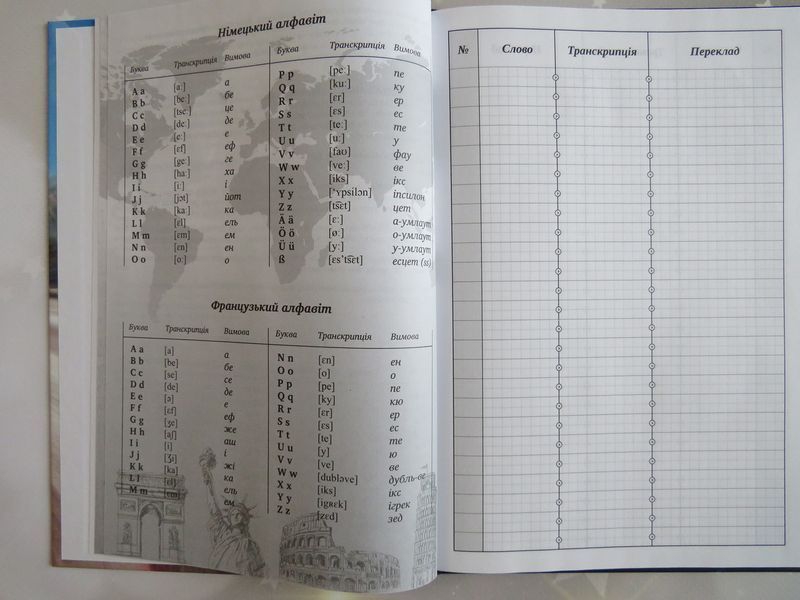 Німецький алфавіт
Буква Транскрипція Вимова Буква Транскрипція Вимова
A a [a:] а
B b [be:] бе
C c [tse:] це
D d [de:] де
E e [e:] е
F f [ɛf] еф
G g [ge:] ге
H h [ha:] ха
I i [i:] і
J j [jɔt] йот
K k [ka:] ка
L l [ɛl] ель
M m [ɛm] ем
N n [ɛn] ен
O o [o:] о
P p [pe:] пе
Q q [ku:] ку
R r [ɛr] ер
S s [ɛs] ес
T t [te:] те
U u [u:] у
V v [faʊ] фау
W w [ve:] ве
X x [iks] ікс
Y y [ˈʏpsilɔn] іпсилон
Z z [t͡sɛt] цет
Ä ä [ɛ:] а-умлаут
Ö ö [ø:] о-умлаут
Ü ü [y:] у-умлаут
ß [ɛs't͡sɛt] есцет (ss)
Французький алфавіт
Буква Транскрипція Вимова Буква Транскрипція Вимова
A a [a] а
B b [be] бе
C c [se] се
D d [de] де
E e [ə] е
F f [ɛf] еф
G g [ʒe] же
H h [aʃ] аш
I i [i] і
J j [ʒi] жі
K k [ka] ка
L l [ɛl] ель
M m [ɛm] ем
N n [ɛn] ен
O o [o] о
P p [pe] пе
Q q [ky] кю
R r [ɛr] ер
S s [ɛs] ес
T t [te] те
U u [y] ю
V v [ve] ве
W w [dubləve] дубль-ве
X x [iks] ікс
Y y [igʀɛk] ігрек
Z z [zɛd] зед
№ Слово Транскрипція Переклад